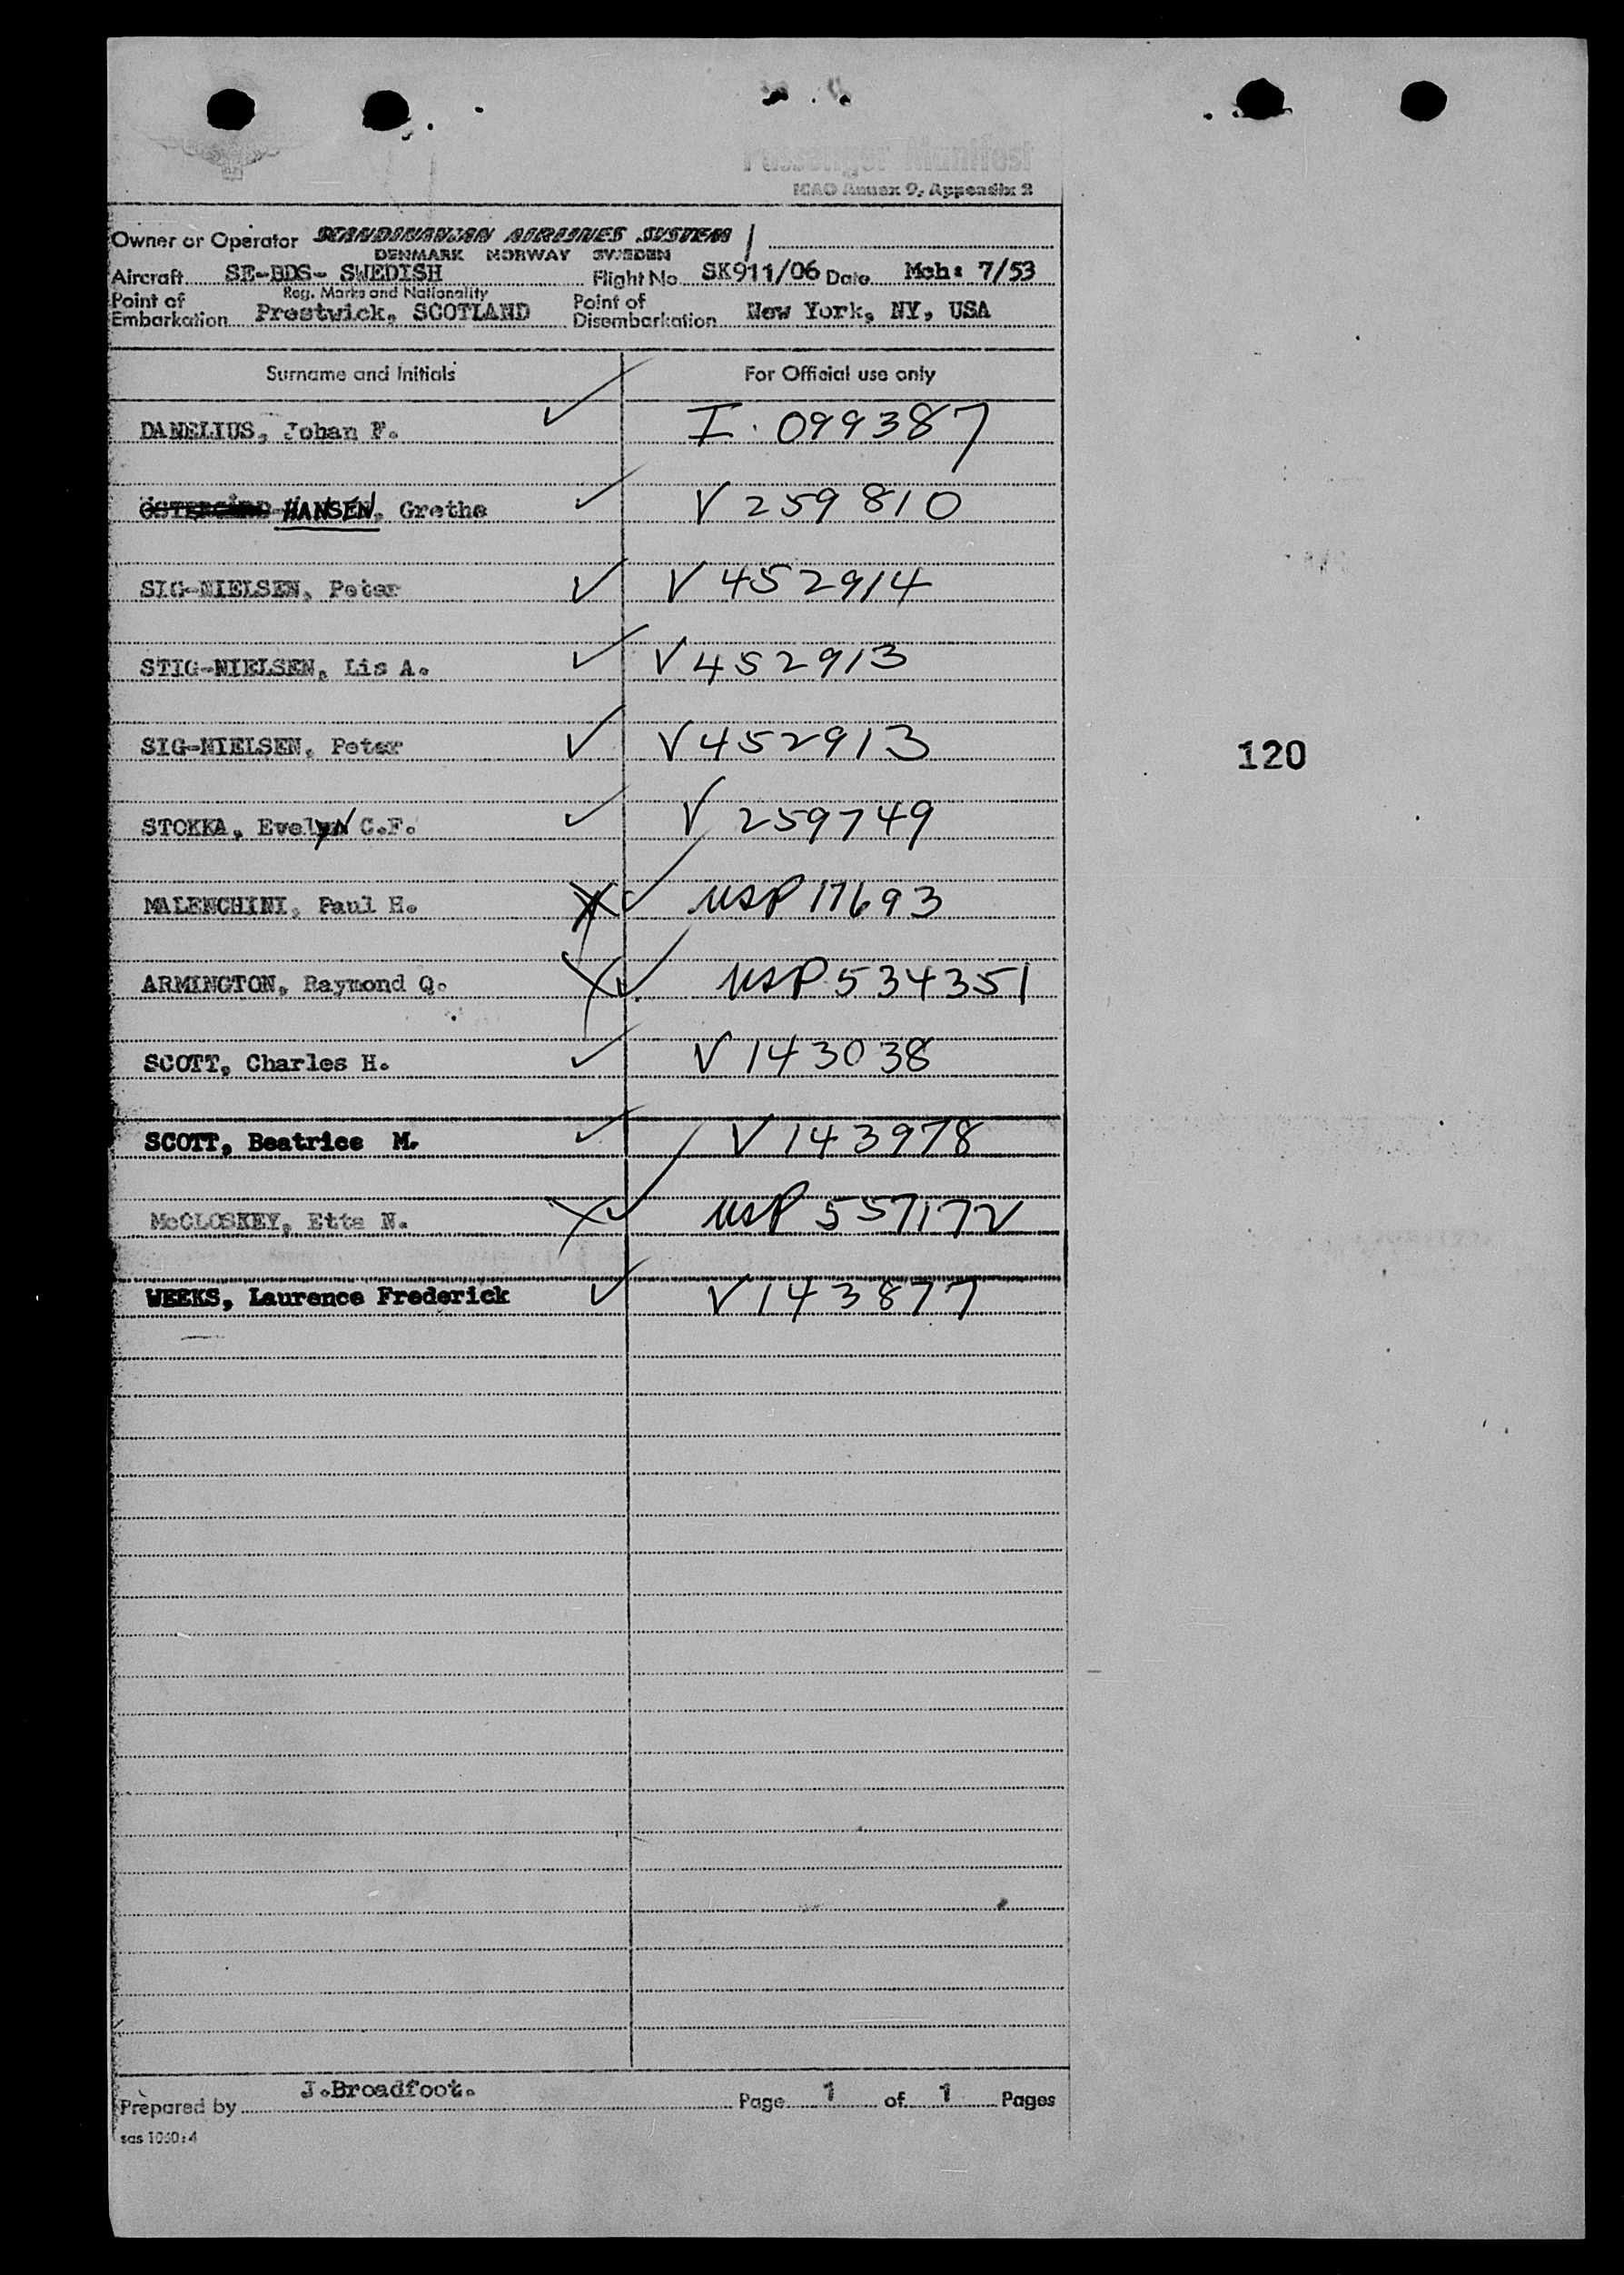 Passenger Manifest
ICAO Annex 9, Appendix 2
Owner or Operator SCANDINAVIAN AIRLINES SYSTEM
DENMARK NORWAY SWEDEN
Aircraft SE-BDS- SWEDISH Flight No SK911/06 Date Mch: 7/53
Reg. Marks and Nationality
Point of Embarkation Prestwick, SCOTLAND Point of Disembarkation New York, NY, USA
Surname and Initials For Official use only
DANELIUS, Johan F. I. 099387
HANSEN, Grethe V 259810
SIG-NIELSEN, Peter V 452914
STIG-NIELSEN, Lis A. V 452913
SIG-NIELSEN, Peter V 452913
120
STOKKA, Evelyn C.F. V 259749
MALENCHINI, Paul H. USP 17693
ARMINGTON, Raymond Q. USP 534351
SCOTT, Charles H. V 143038
SCOTT, Beatrice M. V 143978
McCLOSKEY, Etta N. USP 557172
WEEKS, Laurence Frederick V 143877
Prepared by J.Broadfoot. Page 1 of 1 Pages
sas 1060:4